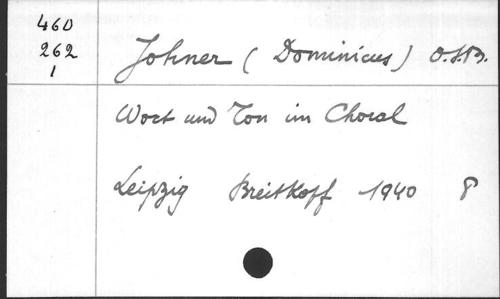 460
262
1
Johner (Dominicus) O.S.B.
Wort und Ton im Choral
Leipzig Breitkopf 1940 8